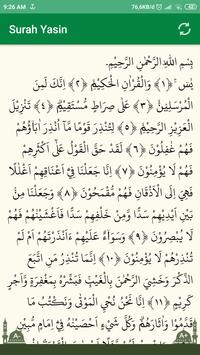 9:26 AM
76,6KB/s
Surah Yasin
بِسْمِ اللهِ الرَّحْمٰنِ الرَّحِيْمِ.
يٰسۤ ۚ ﴿١﴾ وَالْقُرْاٰنِ الْحَكِيْمِۙ ﴿٢﴾ اِنَّكَ لَمِنَ
الْمُرْسَلِيْنَۙ ﴿٣﴾ عَلٰى صِرَاطٍ مُّسْتَقِيْمٍۗ ﴿٤﴾ تَنْزِيْلَ
الْعَزِيْزِ الرَّحِيْمِۙ ﴿٥﴾ لِتُنْذِرَ قَوْمًا مَّآ اُنْذِرَ اٰبَاۤؤُهُمْ
فَهُمْ غٰفِلُوْنَ ﴿٦﴾ لَقَدْ حَقَّ الْقَوْلُ عَلٰٓى اَكْثَرِهِمْ
فَهُمْ لَا يُؤْمِنُوْنَ ﴿٧﴾ اِنَّا جَعَلْنَا فِيْٓ اَعْنَاقِهِمْ اَغْلٰلًا
فَهِيَ اِلَى الْاَذْقَانِ فَهُمْ مُّقْمَحُوْنَ ﴿٨﴾ وَجَعَلْنَا مِنْۢ
بَيْنِ اَيْدِيْهِمْ سَدًّا وَّمِنْ خَلْفِهِمْ سَدًّا فَاَغْشَيْنٰهُمْ فَهُمْ
لَا يُبْصِرُوْنَ ﴿٩﴾ وَسَوَاۤءٌ عَلَيْهِمْ ءَاَنْذَرْتَهُمْ اَمْ لَمْ
تُنْذِرْهُمْ لَا يُؤْمِنُوْنَ ﴿١٠﴾ اِنَّمَا تُنْذِرُ مَنِ اتَّبَعَ
الذِّكْرَ وَخَشِيَ الرَّحْمٰنَ بِالْغَيْبِۚ فَبَشِّرْهُ بِمَغْفِرَةٍ وَّاَجْرٍ
كَرِيْمٍ ﴿١١﴾ اِنَّا نَحْنُ نُحْيِ الْمَوْتٰى وَنَكْتُبُ مَا
قَدَّمُوْا وَاٰثَارَهُمْۗ وَكُلَّ شَيْءٍ اَحْصَيْنٰهُ فِيْٓ اِمَامٍ مُّبِيْنٍ